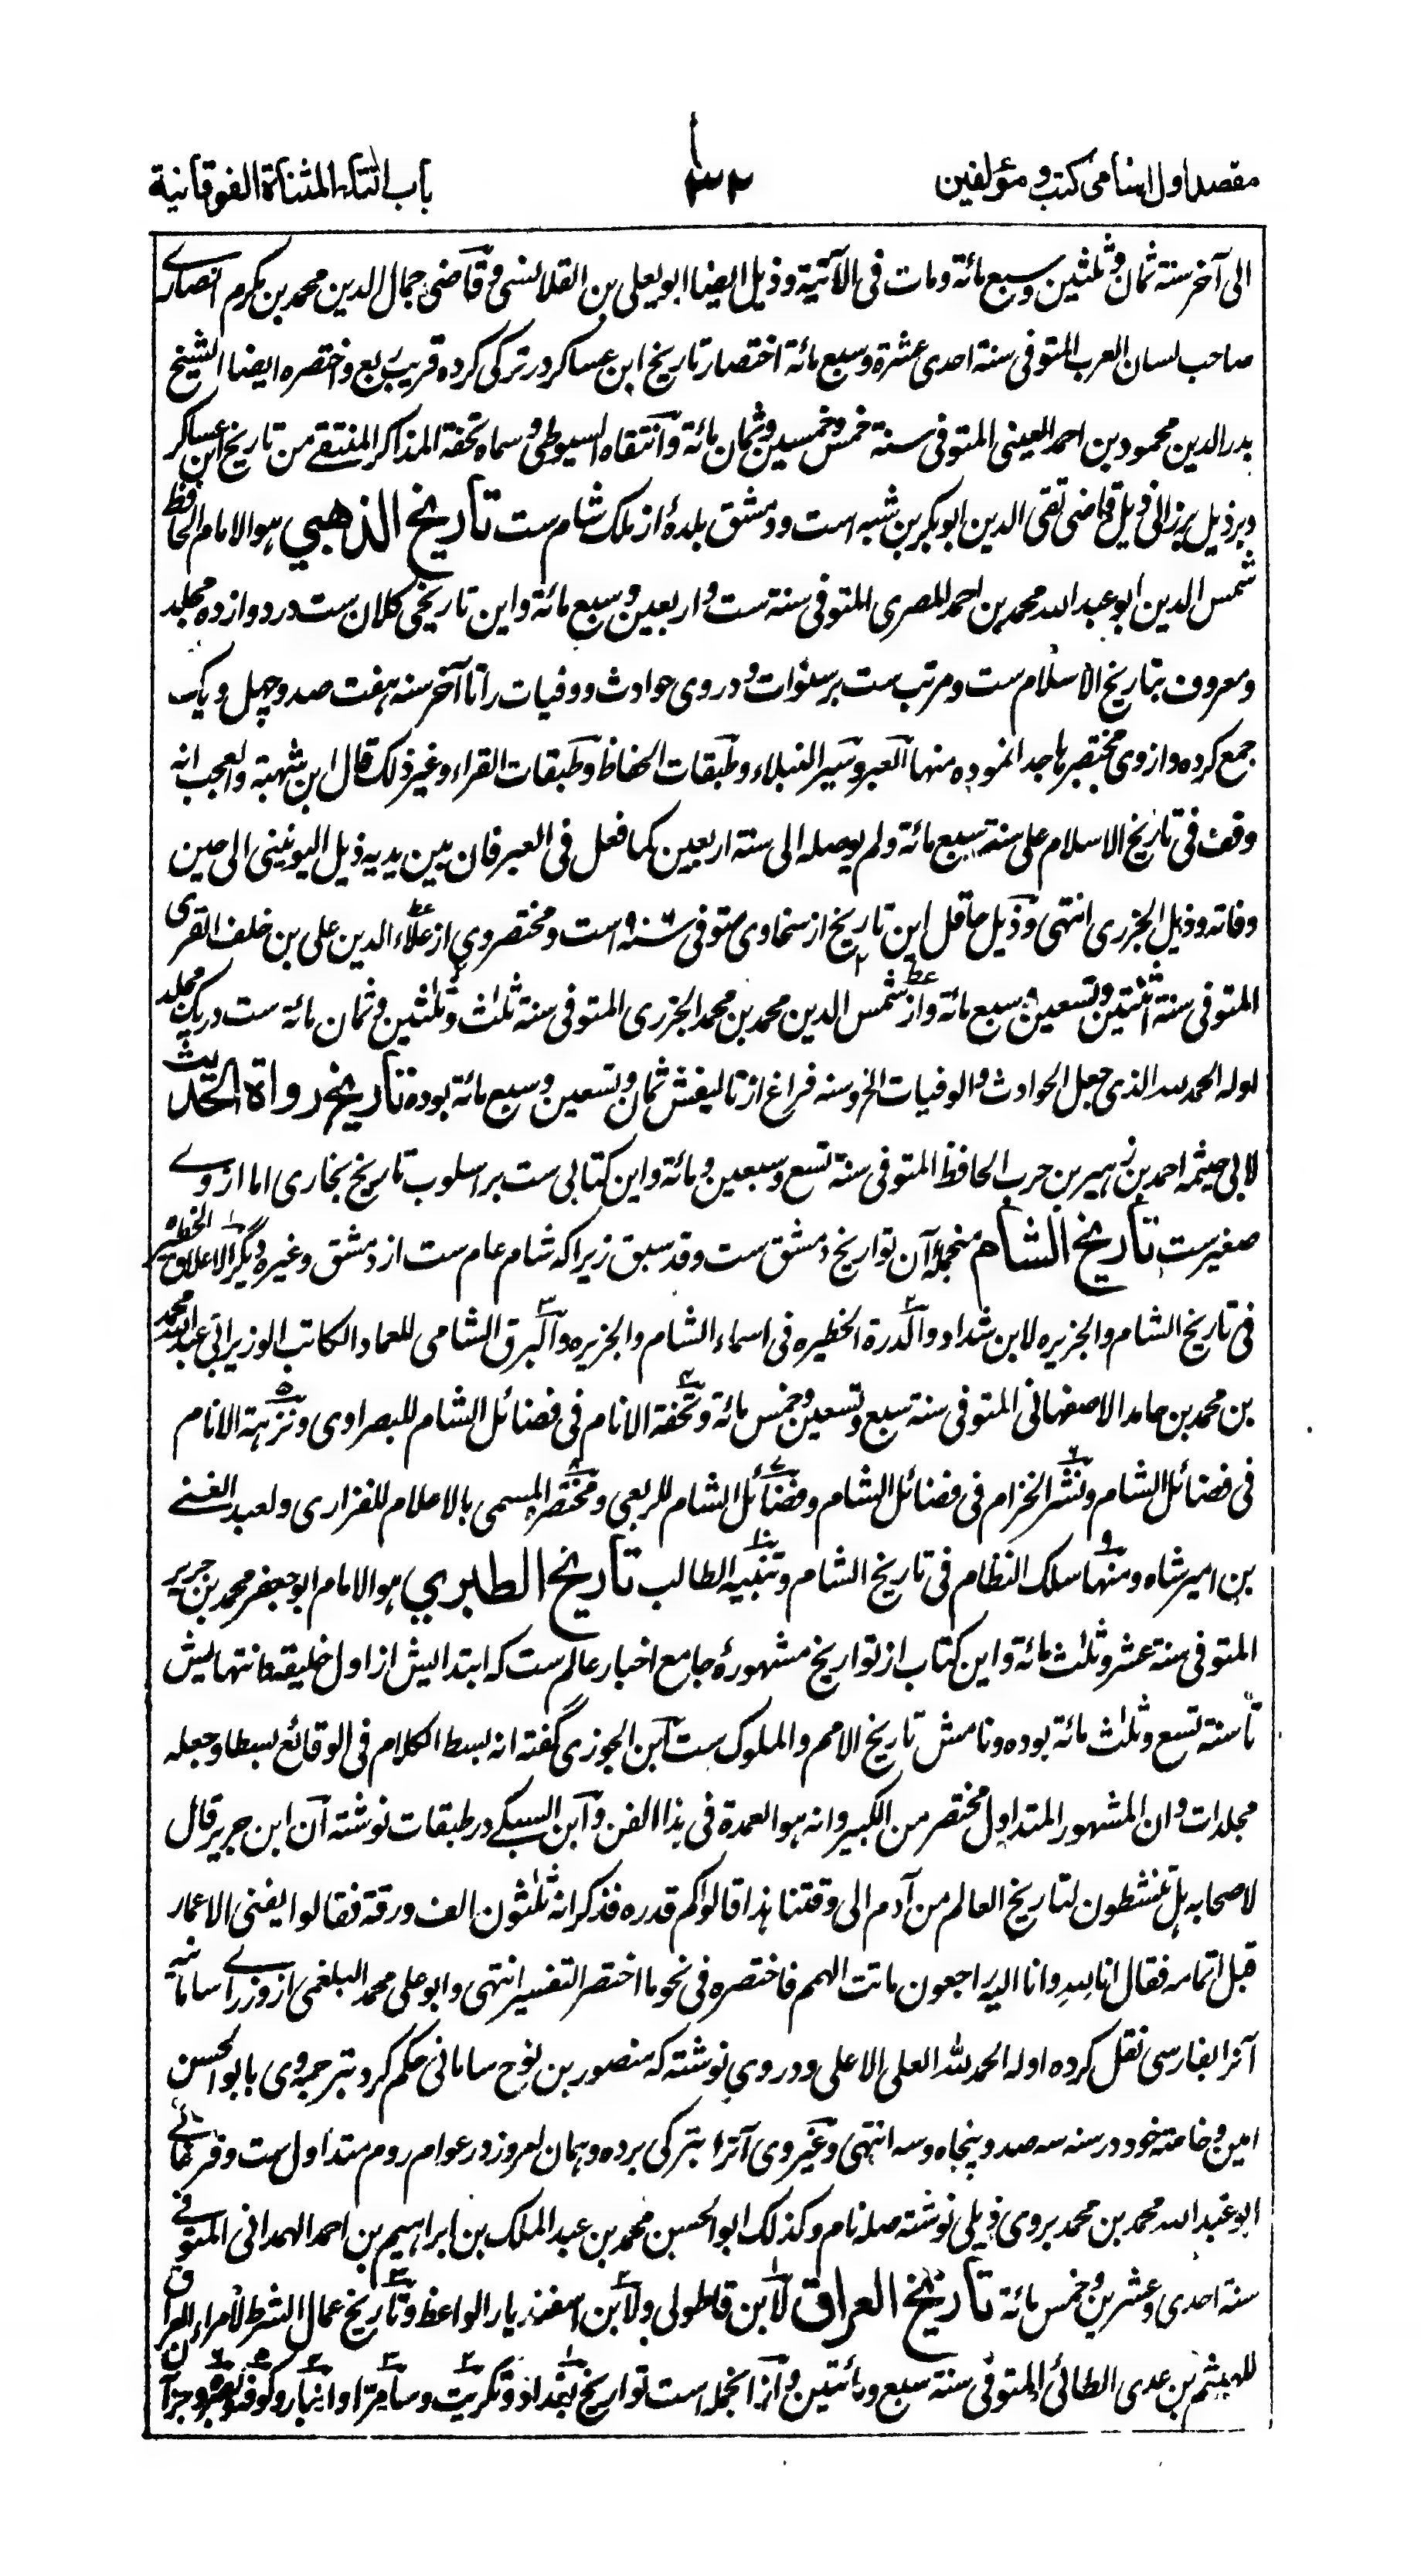 مقصد اول اسامی کتب و مؤلفین
باب التاء المثناة الفوقانیة
الی آخر سنة ثمان و ثلثین و سبع مائة و مات فی الآتیة و ذیل ایضا ابو یعلی بن القلانسی و قاضی جمال الدین محمد بن مکرم انصاری
صاحب لسان العرب المتوفی سنة احدی عشرة و سبع مائة اختصار تاریخ ابن عساکر در ترکی کرده قریب ربع و اختصره ایضا الشیخ
بدر الدین محمود بن احمد العینی المتوفی سنة خمس و خمسین و ثمان مائة و انتقاه السیوطی و سماه تحفة المذاکر المنتقے من تاریخ ابن عساکر
و بر ذیل برزالی ذیل قاضی تقی الدین ابو بکر بن شبه است و دمشق بلدهٔ از ملک شام ست تاریخ الذهبی هو الامام الحافظ
شمس الدین ابو عبد الله محمد بن احمد المصری المتوفی سنة ست و اربعین و سبع مائة و این تاریخی کلان ست در دوازده مجلد
و معروف بتاریخ الاسلام ست و مرتب ست بر سنوات و در وی حوادث و وفیات را تا آخر سنه هفت صد و چهل و یک
جمع کرده و از وی مختصرها جدا نموده منها العبر و سیر النبلاء و طبقات الحفاظ و طبقات القراء و غیر ذلک قال ابن شهبة و العجب انه
وقف فی تاریخ الاسلام علی سنة سبع مائة و لم یوصله الی سنة اربعین کما فعل فی العبر فان بین یدیه ذیل الیونینی الی حین
وفاته و ذیل الجزری انتهی و ذیل حافل این تاریخ از سخاوی متوفی سنه است و مختصر وی از علاء الدین علی بن خلف القری
المتوفی سنة اثنتین و تسعین و سبع مائة و از شمس الدین محمد بن محمد الجزری المتوفی سنة ثلث و ثلثین و ثمان مائة ست در یک مجلد
اوله الحمد لله الذی جعل الحوادث و الوفیات الخ و سنه فراغ از تالیفش ثمان و تسعین و سبع مائة بوده تاریخ رواة الحدیث
لابی خیثمه احمد بن زهیر بن حرب الحافظ المتوفی سنة تسع و سبعین و مائة و این کتابی ست بر اسلوب تاریخ بخاری اما از وے
صغیر ست تاریخ الشام منجملهٔ آن تواریخ دمشق ست و قد سبق زیرا که شام عام ست از دمشق و غیره و دیگر الاعلاق الخطیره
فی تاریخ الشام و الجزیره لابن شداد و الدرة الخطیره فی اسماء الشام و الجزیره و البرق الشامی للعماد الکاتب الوزیر ابی عبد الله محمد
بن محمد بن حامد الاصفهانی المتوفی سنة سبع و تسعین و خمس مائة و تحفة الانام فی فضائل الشام للبصراوی و نزهة الانام
فی فضائل الشام و نشر الخزام فی فضائل الشام و فضائل الشام للربعی و مختصره المسمی بالاعلام للفزاری و لعبد الغنے
بن امیر شاه و منها سلک النظام فی تاریخ الشام و تنبیه الطالب تاریخ الطبری هو الامام ابو جعفر محمد بن جریر
المتوفی سنة عشر و ثلث مائة و این کتاب از تواریخ مشهورهٔ جامع اخبار عالم ست که ابتدایش از اول خلیقه و انتهایش
تا سنة تسع و ثلث مائة بوده و نامش تاریخ الامم و الملوک ست ابن الجوزی گفته انه بسط الکلام فی الوقائع بسطا و جعله
مجلدات و ان المشهور المتداول مختصر من الکبیر و انه هو العمدة فی هذا الفن و ابن السبکے در طبقات نوشته ان ابن جریر قال
لاصحابه هل تنشطون لتاریخ العالم من آدم الی وقتنا هذا قالوا کم قدره فذکر انه ثلثون الف ورقة فقالوا یفنی الاعمار
قبل اتمامه فقال انا لله و انا الیه راجعون ماتت الهمم فاختصره فی نحو ما اختصر التفسیر انتهی و ابو علی محمد البلعمی از وزرائے سامانیه
آنرا بفارسی نقل کرده اوله الحمد لله العلی الاعلی و در وی نوشته که منصور بن نوح سامانی حکم کرد بترجمه وی با بو الحسن
امین و خاصته خود در سنه سه صد و پنجاه و سه انتهی و غیر وی آنرا بترکی برده و همان امروز در عوام روم متداول ست و فرغانے
ابو عبد الله محمد بن محمد بر وی ذیلی نوشته صله نام و کذلک ابو الحسین محمد بن عبد الملک بن ابراهیم بن احمد الهمدانی المتوفے
سنة احدی و عشرین و خمس مائة تاریخ العراق لابن قاطولی و لابن اسفندیار الواعظ و تاریخ عمال الشرط لأمراء العراق
للهیثم بن عدی الطائی المتوفی سنة سبع و مائتین و از انجمله است تواریخ بغداد و تکریت و سامرّا و انبار و کوفه و بصره و جز آن